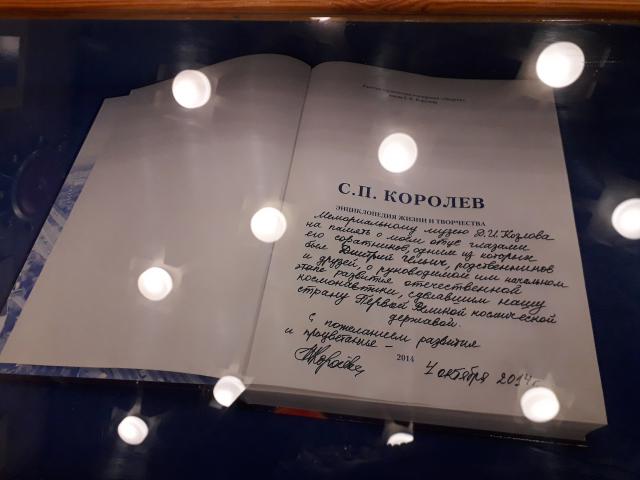 Ракетно-космическая корпорация «Энергия»
имени С.П. Королева
С.П. КОРОЛЕВ
ЭНЦИКЛОПЕДИЯ ЖИЗНИ И ТВОРЧЕСТВА
Мемориальному музею Д.И. Козлова
на память о моём отце глазами
его соратников, одним из которых
был Дмитрий Ильич, родственников
и друзей, о руководимом им начальном
этапе развития отечественной
космонавтики, сделавшим нашу
страну Первой Великой космической
державой.
С пожеланием развития
и процветания –
2014
4 октября 2014 г.